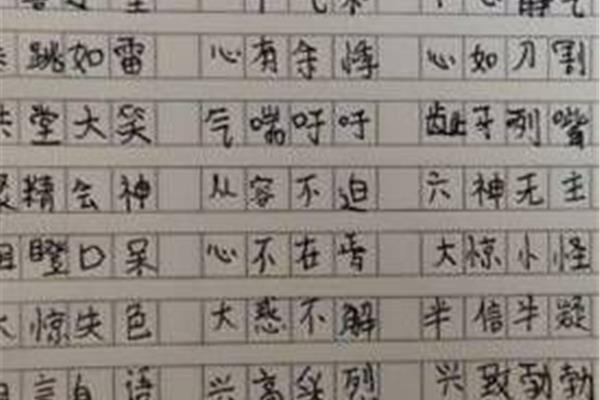 心静气
跳如雷 心有余悸 心如刀割
堂大笑 气喘吁吁 龇牙咧嘴
精会神 从容不迫 六神无主
瞪口呆 心不在焉 大惊小怪
大惊失色 大惑不解 半信半疑
言自语 兴高采烈 兴致勃勃